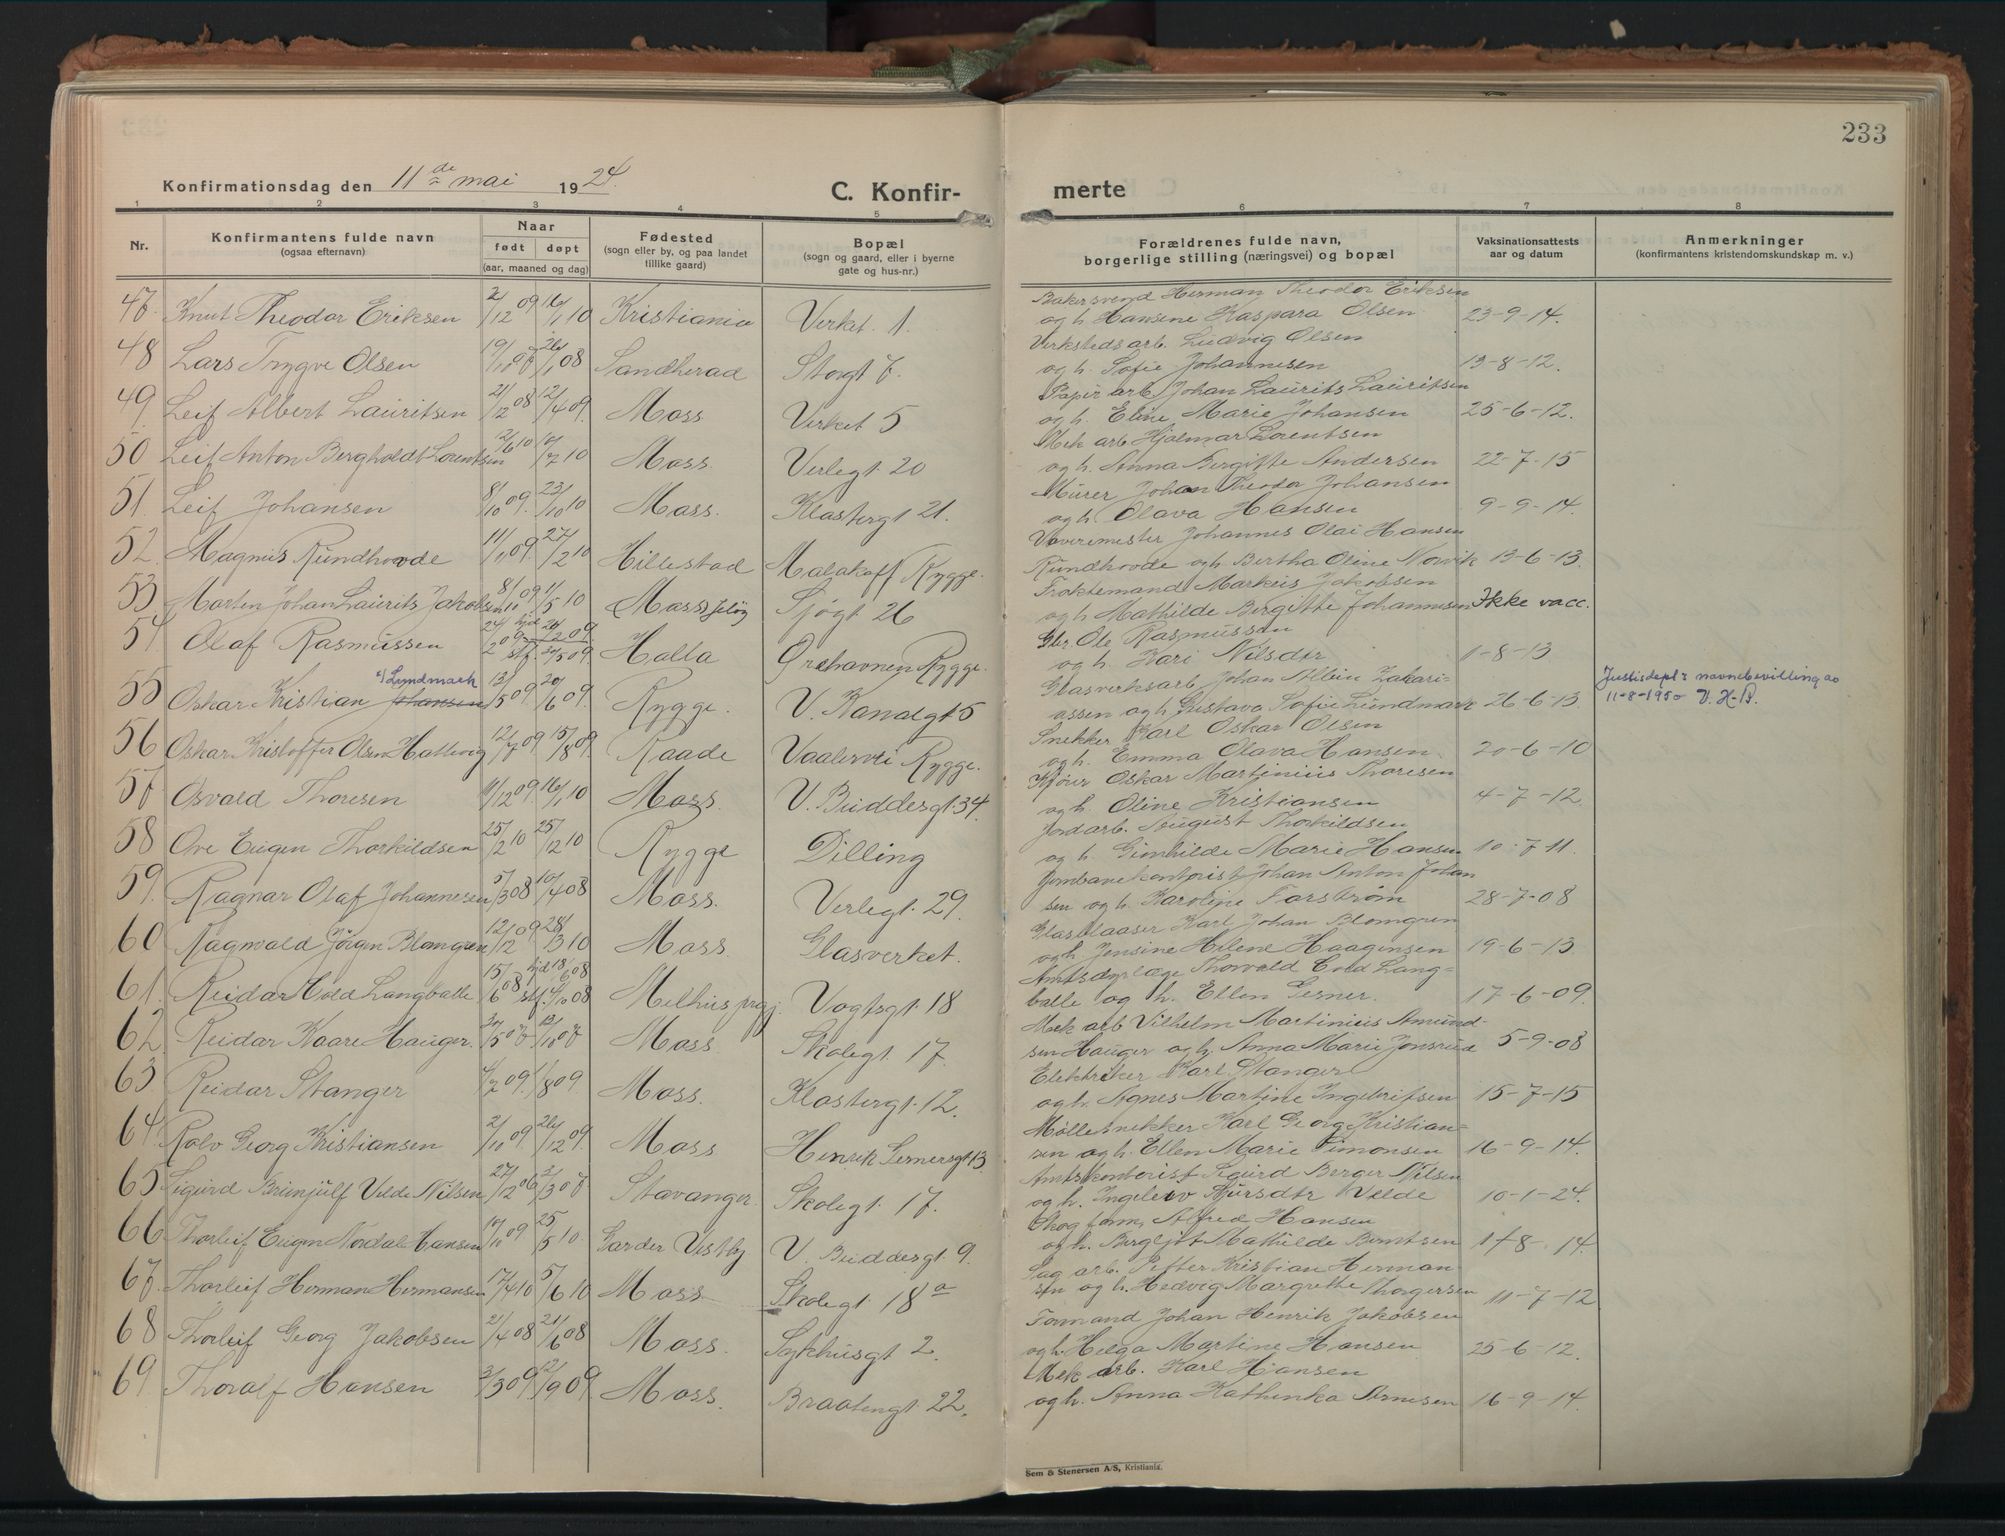 233
Konfirmationsdag den 11de mai 1924.
C. Konfir-
merte
1 2 3 4 5 6 7 8
Nr.
Konfirmantens fulde navn
(ogsaa efternavn)
Naar
født døpt
(aar, maaned og dag)
Fødested
(sogn eller by, og paa landet
tillike gaard)
Bopæl
(sogn og gaard, eller i byerne
gate og hus-nr.)
Forældrenes fulde navn,
borgerlige stilling (næringsvei) og bopæl
Vaksinationsattests
aar og datum
Anmerkninger
(konfirmantens kristendomskundskap m. v.)
47 Knut Theodor Eriksen 2/12 09 16/1 10 Kristiania Verket 1. Bakersvend Herman Theodor Eriksen
og h. Hansine Kaspara Olsen 23-9-14.
48 Lars Trygve Olsen 19/10 07 26/1 08 Sandherad Storgt 7. Verkstedsarb. Ludvig Olsen
og h. Sofie Johannesen 13-8-12.
49. Leif Albert Lauritsen 21/12 08 12/4 09. Moss Virket 5 Papir arb. Johan Laurits Lauritsen
og h. Eline Marie Johansen 25-6-12.
50 Leif Anton Bergholdt Lorentsen 2/6 10 10/7 10 Moss. Verlegt 20 Mek arb Hjalmar Lorentsen
og h. Anna Bergitte Andersen 22-7-15
51. Leif Johansen 8/10 09. 23/10 10 Moss. Klostergt 21. Murer Johan Theodor Johansen
og h. Olava Hansen 9-9-14.
52. Magnus Rundhovde 11/1 09. 27/2 10 Hillestad Malakoff Rygge. Vaveremester Johannes Olai Hansen
Rundhovde og h. Bertha Oline Norvik 13-6-13.
53 Marten Johan Laurits Jakobsen 8/10 09 1/5 10 Moss Jeløy Sjøgt 26 Fraktemand Markus Jakobsen
og h. Mathilde Bergitte Johannesen Ikke vacc.
54. Olaf Rasmussen 24/2 09. hjd 26/2 09. stf. 30/5 09. Halla Ørehavnen Rygge. Gbr. Ole Rasmussen
og h. Kari Nilsdtr 1-8-13
55 Oskar Kristian Johansen Lundmark 13/5 09 20/6 09. Rygge. V. Kanalgt 5 Glasverksarb Johan Albin Zakari-
assen og h. Gustava Sofie Lundmark 26-6-13. Justisdept's navnebevilling av
11-8-1950 V. H-B.
56 Oskar Kristoffer Olsen Hattevig 12/7 09 15/8 09. Raade Vaalervei Rygge. Snekker Karl Oskar Olsen
og h. Emma Olava Hansen 20-6-10
57 Osvald Thoresen 11/12 09. 16/1 10 Moss. V. Buddesgt. 34. Kjører Oskar Martinius Thoresen
og h. Oline Kristiansen 4-7-12.
58 Ove Eugen Thorkildsen 25/2 10 25/12 10 Rygge Dilling Jordarb. August Thorkildsen
og h. Gunhilde Marie Hansen 10-7-11.
59. Ragnar Olaf Johannesen 5/3 08 10/4 08 Moss. Verlegt. 29. Jernbanekontorist Johan Anton Johan
sen og h. Karoline Forsstrøm 28-7-08
60 Ragnvald Jørgen Blomgren 12/12 09 28/3 10 Moss Glasverket. Glasblaaser Karl Johan Blomgren
og h. Jensine Helene Haagensen 19-6-13
61. Reidar Hold Langballe 15/6 08 hjd 18/6 08 stf. 4/10 08 Melhus prgj. Vogtsgt 18 Amtsdyrlæge Thorvald Hold Lang-
balle og h. Ellen Gesner. 17-6-09.
62 Reidar Kaare Hauger. 20/5 07 13/10 07 Moss Skolegt 17. Mek arb Vilhelm Martinius Amund-
sen Hauger og h. Anna Marie Jonsrud 5-9-08
63 Reidar Stanger 4/2 09. 1/8 09 Moss. Klostergt. 12. Elektriker Karl Stanger
og h. Agnes Martine Ingebrigtsen 15-7-15
64. Rolv Georg Kristiansen 2/10 09 26/12 09. Moss Henrik Gernersgt 13. Møllesnekker Karl Georg Kristian-
sen og h. Ellen Marie Simonsen 16-9-14.
65 Sigurd Brunjulf Velde Nilsen 27/12 06 3/3 07 Stavanger. Skolegt 17. Amtskontorist Sigurd Berger Nilsen
og h. Ingeleiv Velde 10-1-24.
66 Thorleif Eugen Nordal Hansen 10/10 09 25/5 10 Garder Vestby V. Buddesgt 9. Skog form. Alfred Hansen
og h. Bergljot Mathilde Berntsen 17-8-14.
67. Thorleif Herman Hermansen 17/4 10 5/6 10 Moss Skolegt 18 a Sag arb. Petter Kristian Herman
sen og h. Hedvig Margrethe Thorgersen 11-7-12
68 Thorleif Georg Jakobsen 21/4 08 21/6 08 Moss. Sykhusgt 2. Formand Johan Henrik Jakobsen
og h. Helga Martine Hansen 25-6-12.
69 Thoralf Hansen 3/3 09. 12/9 09 Moss. Braatengt 22. Mek arb. Karl Hansen
og h. Anna Kathinka Arnesen 16-9-14.
Sem & Stenersen A/S, Kristiania.